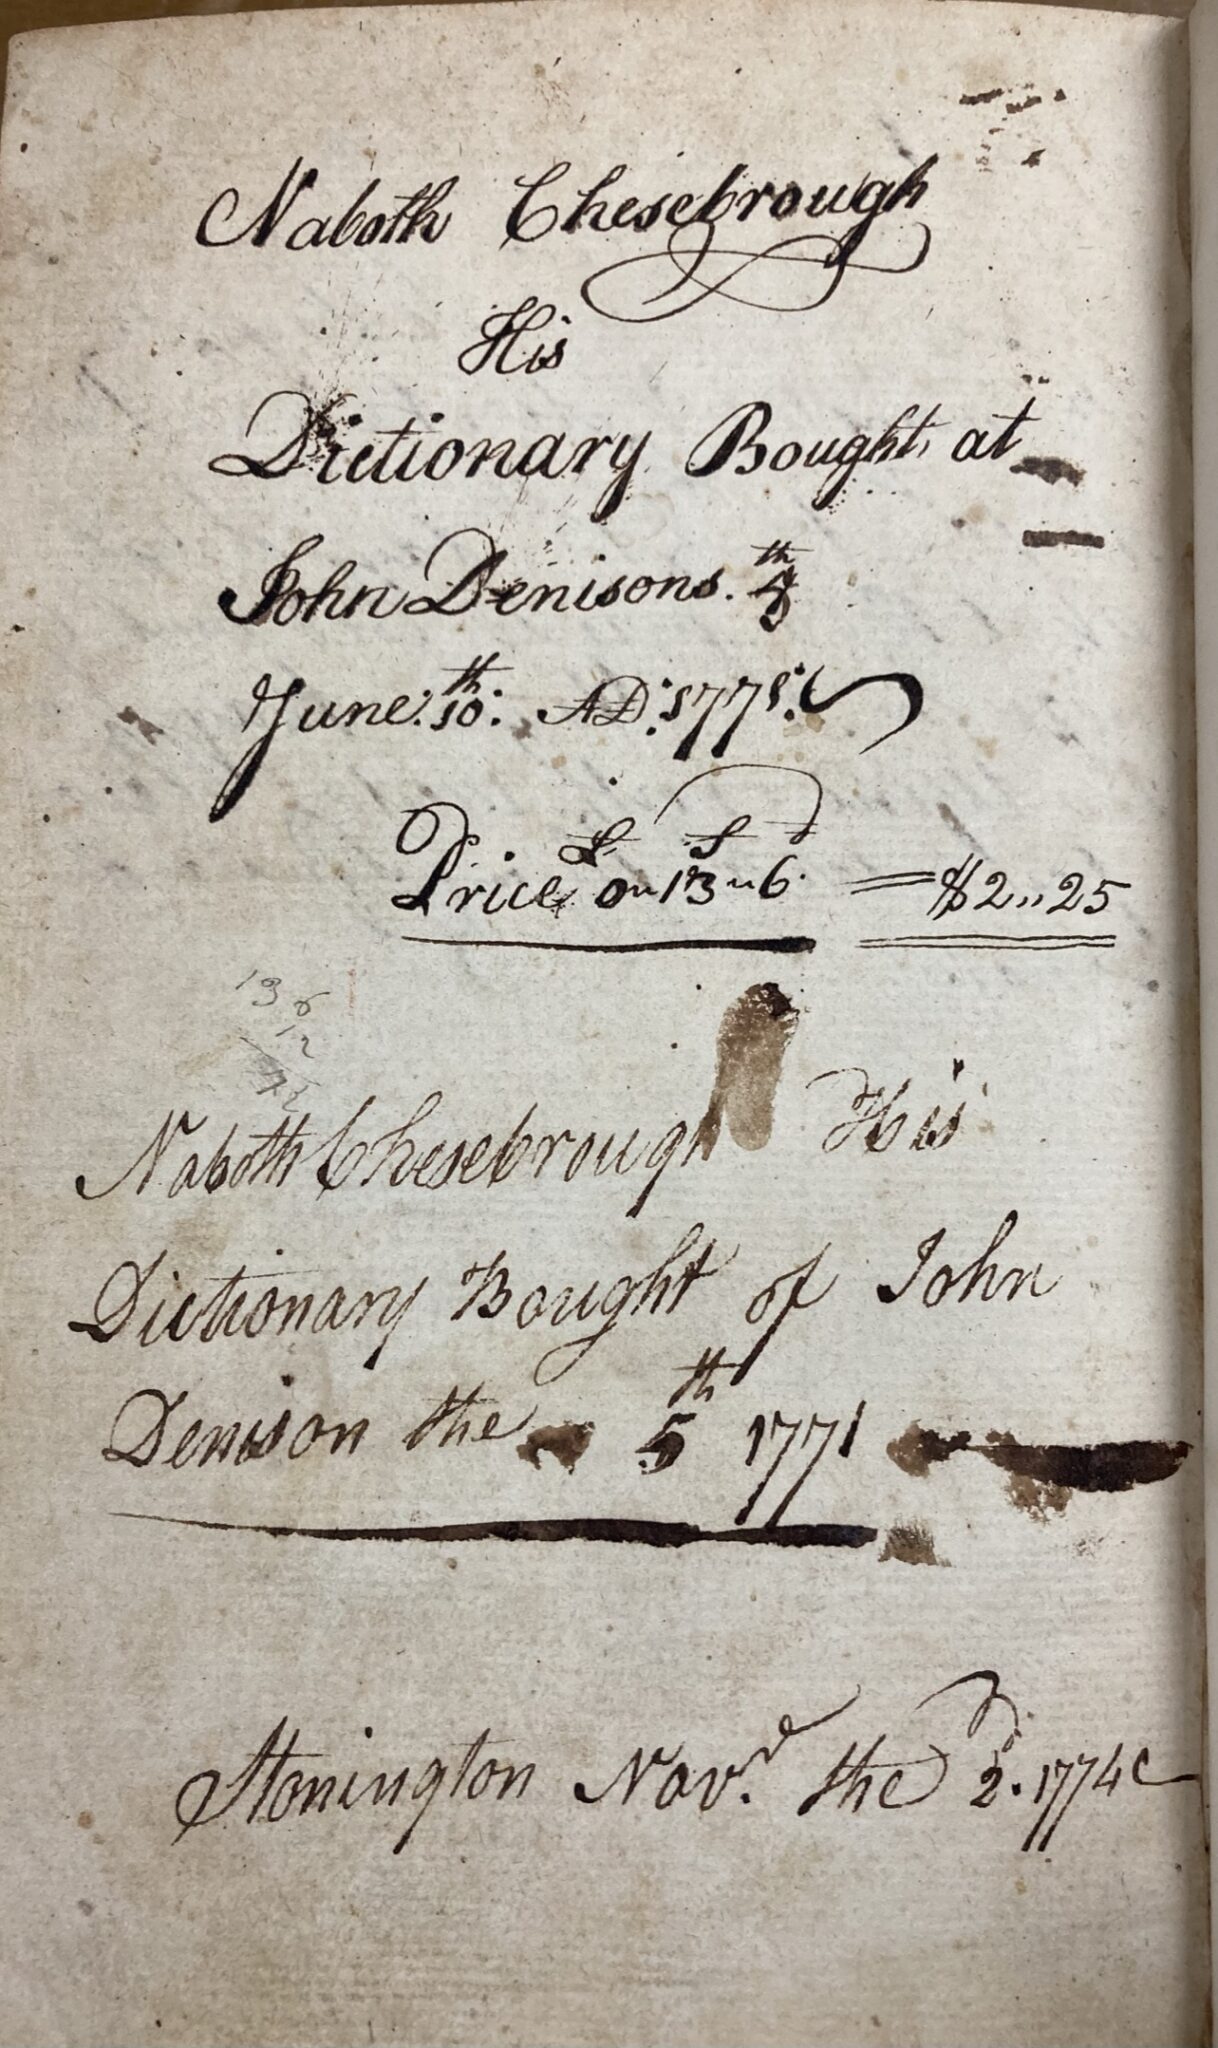 Naboth Chesebrough
His
Dictionary Bought at
John Denisons. th
June: 10th: AD: 1771:
£ S d
Price 0 ,, 13 ,, 6. = $2,,25
13 6
12
Naboth Chesebrough His
Dictionary Bought of John
Denison the 5th 1771
Stonington Novr. the 2d. 1774